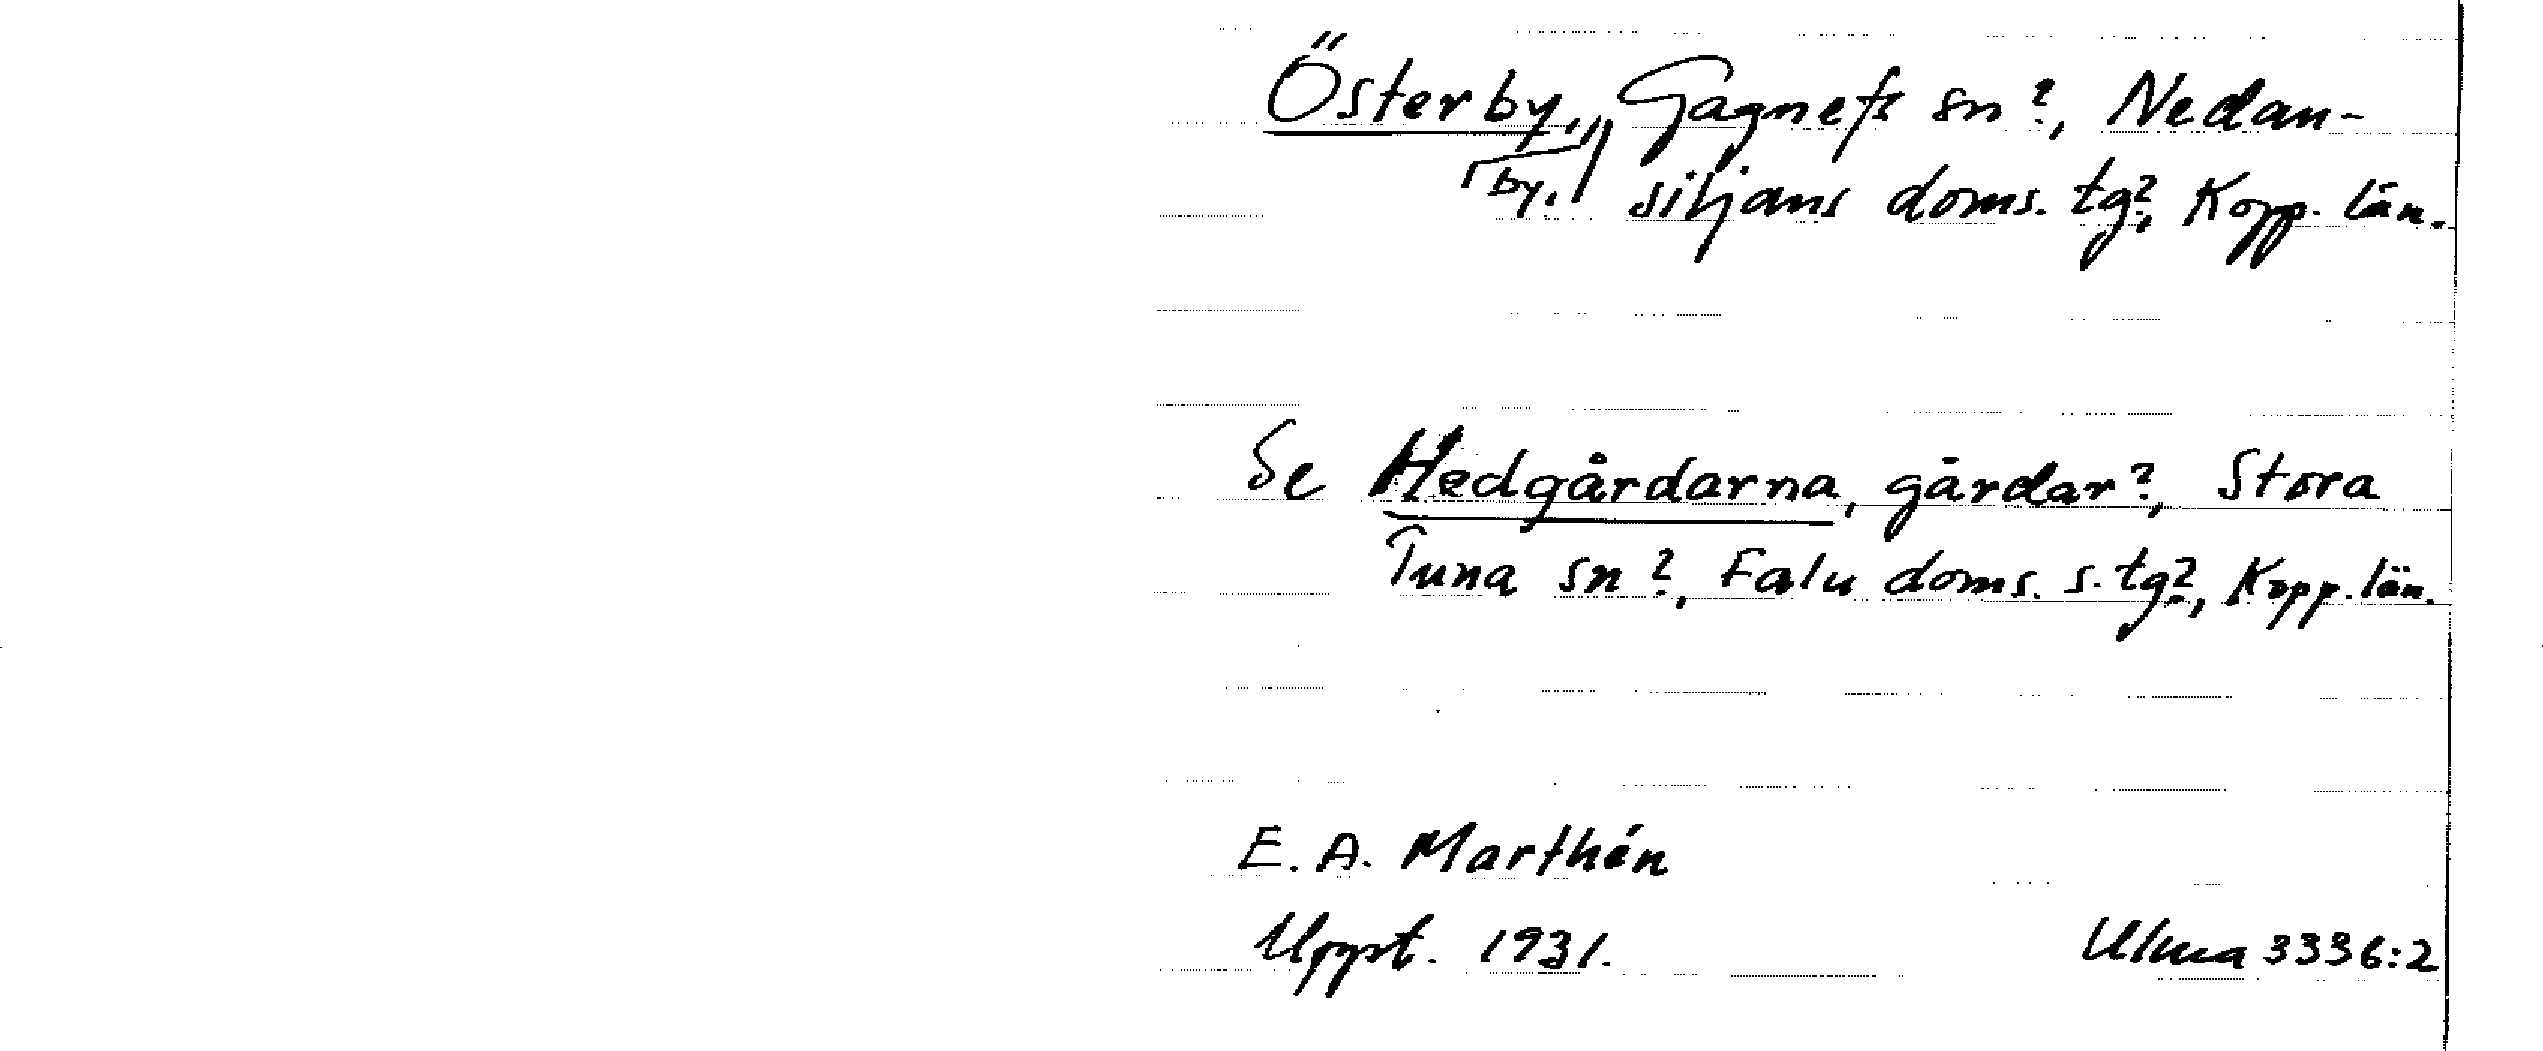 Österby, by, Gagnefs sn?, Nedan-
siljans doms. tg?, Kopp. län.
Se Hedgårdarna, gårdar?, Stora
Tuna sn?, Falu doms. s. tg?, Kopp. län.
E. A. Marthén
Uppt. 1931. Ulma 3336:2